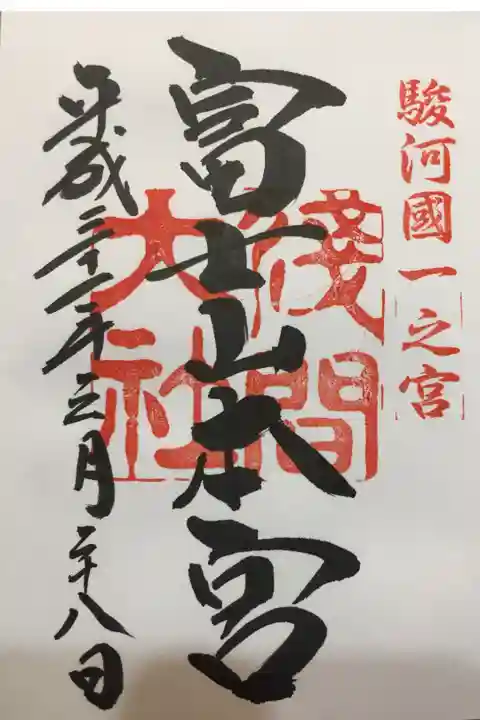 駿河國一之宮
富士山本宮
淺間
大社
平成三十一年三月二十八日